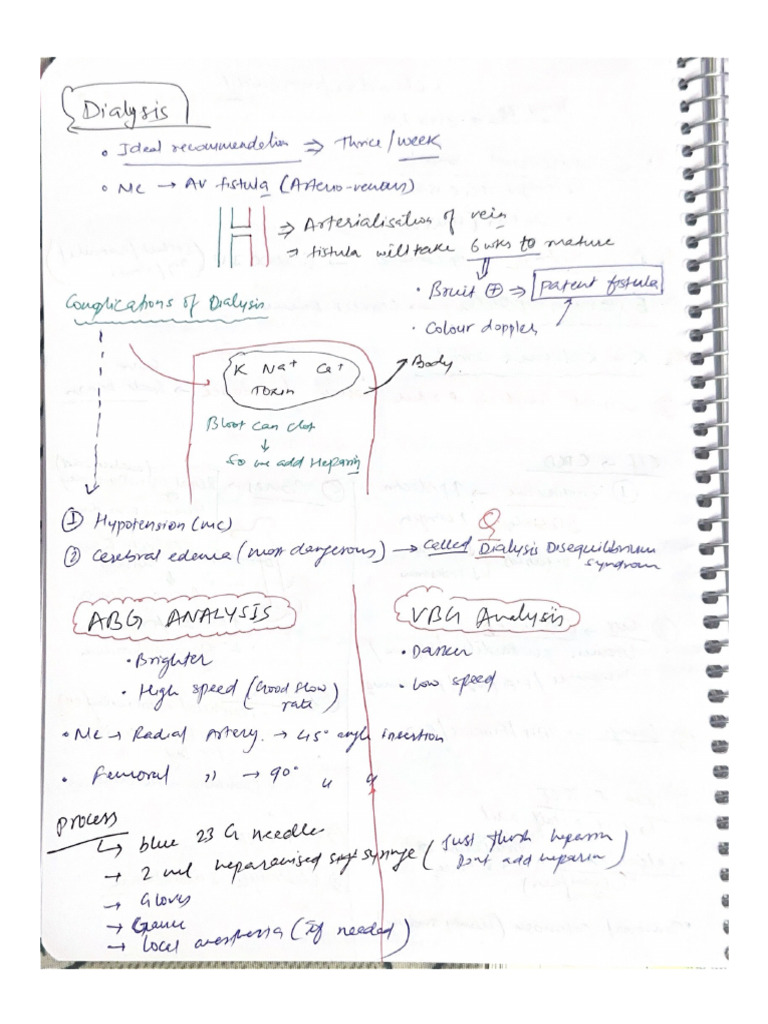 Dialysis
• Ideal recommendation ⇒ Thrice/week
• Mc → AV fistula (Arterio-venous)
⇒ Arterialisation of vein
→ fistula will take 6 wks to mature
• Bruit ⊕ ⇒ patent fistula
• Colour doppler
Complications of Dialysis
K Na+ Ca+
Toxin
Body.
Blood can clot
↓
So we add Heparin
① Hypotension (mc)
Q
② Cerebral edema (most dangerous) → Called Dialysis Disequilibrium
Syndrom
ABG ANALYSIS
• Brighter
• High speed (Good flow
rate)
VBG Analysis
• Darker
• Low speed
• Mc → Radial Artery. → 45° angle insertion
• Femoral " → 90° " "
Process
↳ blue 23 G needle
→ 2 ml heparanised syringe (Just flush heparin
Dont add heparin)
→ Gloves
→ Gauze
→ local anesthesia (If needed)